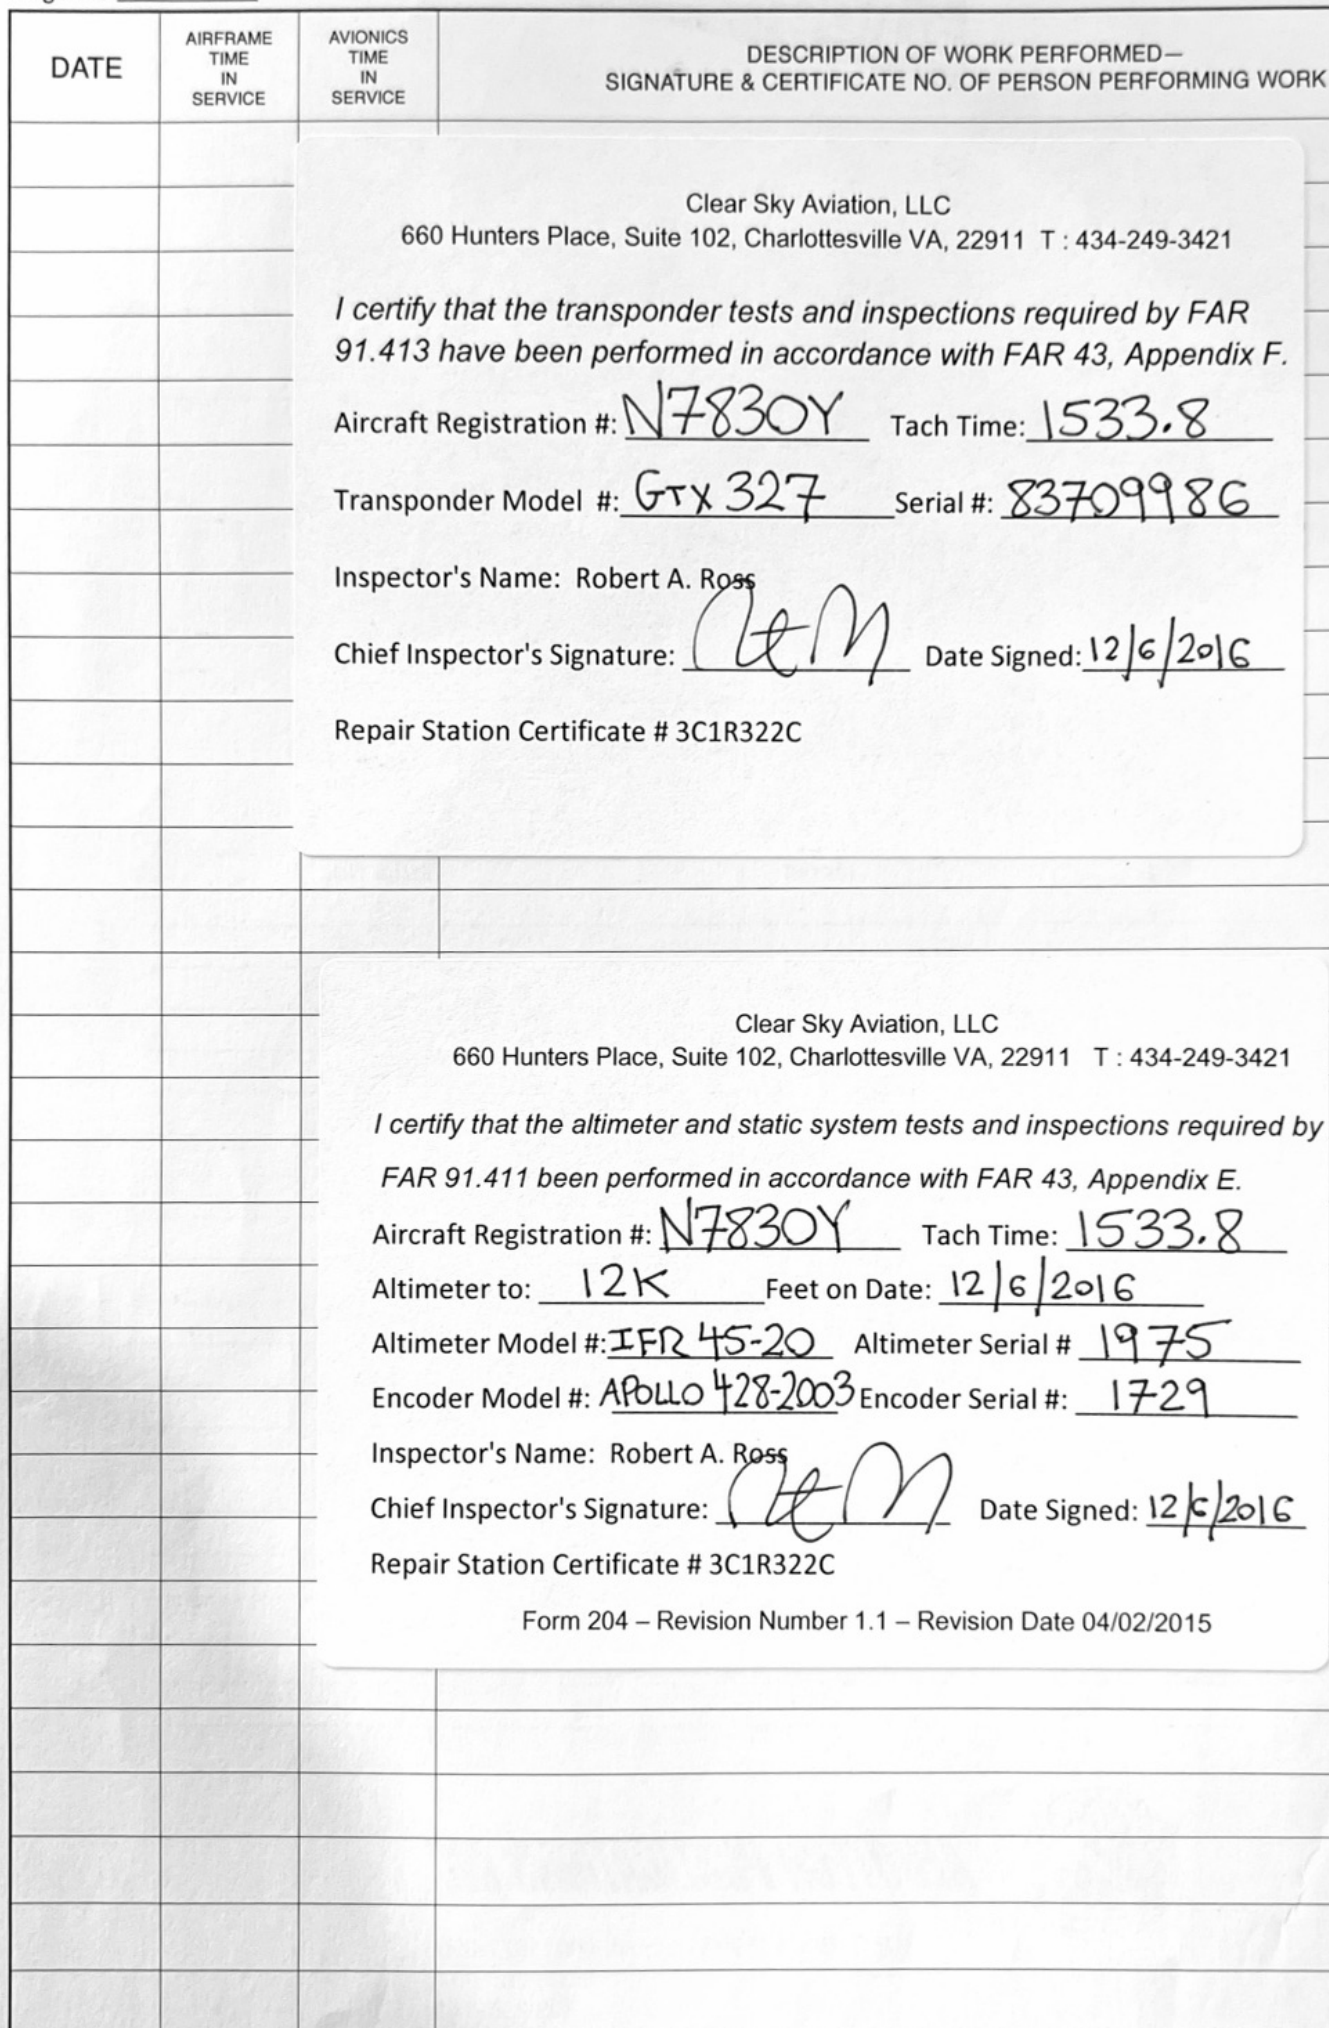 DATE
AIRFRAME TIME IN SERVICE
AVIONICS TIME IN SERVICE
DESCRIPTION OF WORK PERFORMED—
SIGNATURE & CERTIFICATE NO. OF PERSON PERFORMING WORK
Clear Sky Aviation, LLC
660 Hunters Place, Suite 102, Charlottesville VA, 22911 T : 434-249-3421
I certify that the transponder tests and inspections required by FAR
91.413 have been performed in accordance with FAR 43, Appendix F.
Aircraft Registration #: N7830Y Tach Time: 1533.8
Transponder Model #: GTX 327 Serial #: 83709986
Inspector's Name: Robert A. Ross
Chief Inspector's Signature: Date Signed: 12/6/2016
Repair Station Certificate # 3C1R322C
Clear Sky Aviation, LLC
660 Hunters Place, Suite 102, Charlottesville VA, 22911 T : 434-249-3421
I certify that the altimeter and static system tests and inspections required by
FAR 91.411 been performed in accordance with FAR 43, Appendix E.
Aircraft Registration #: N7830Y Tach Time: 1533.8
Altimeter to: 12K Feet on Date: 12/6/2016
Altimeter Model #: IFR 45-20 Altimeter Serial # 1975
Encoder Model #: APOLLO 428-2003 Encoder Serial #: 1729
Inspector's Name: Robert A. Ross
Chief Inspector's Signature: Date Signed: 12/6/2016
Repair Station Certificate # 3C1R322C
Form 204 – Revision Number 1.1 – Revision Date 04/02/2015